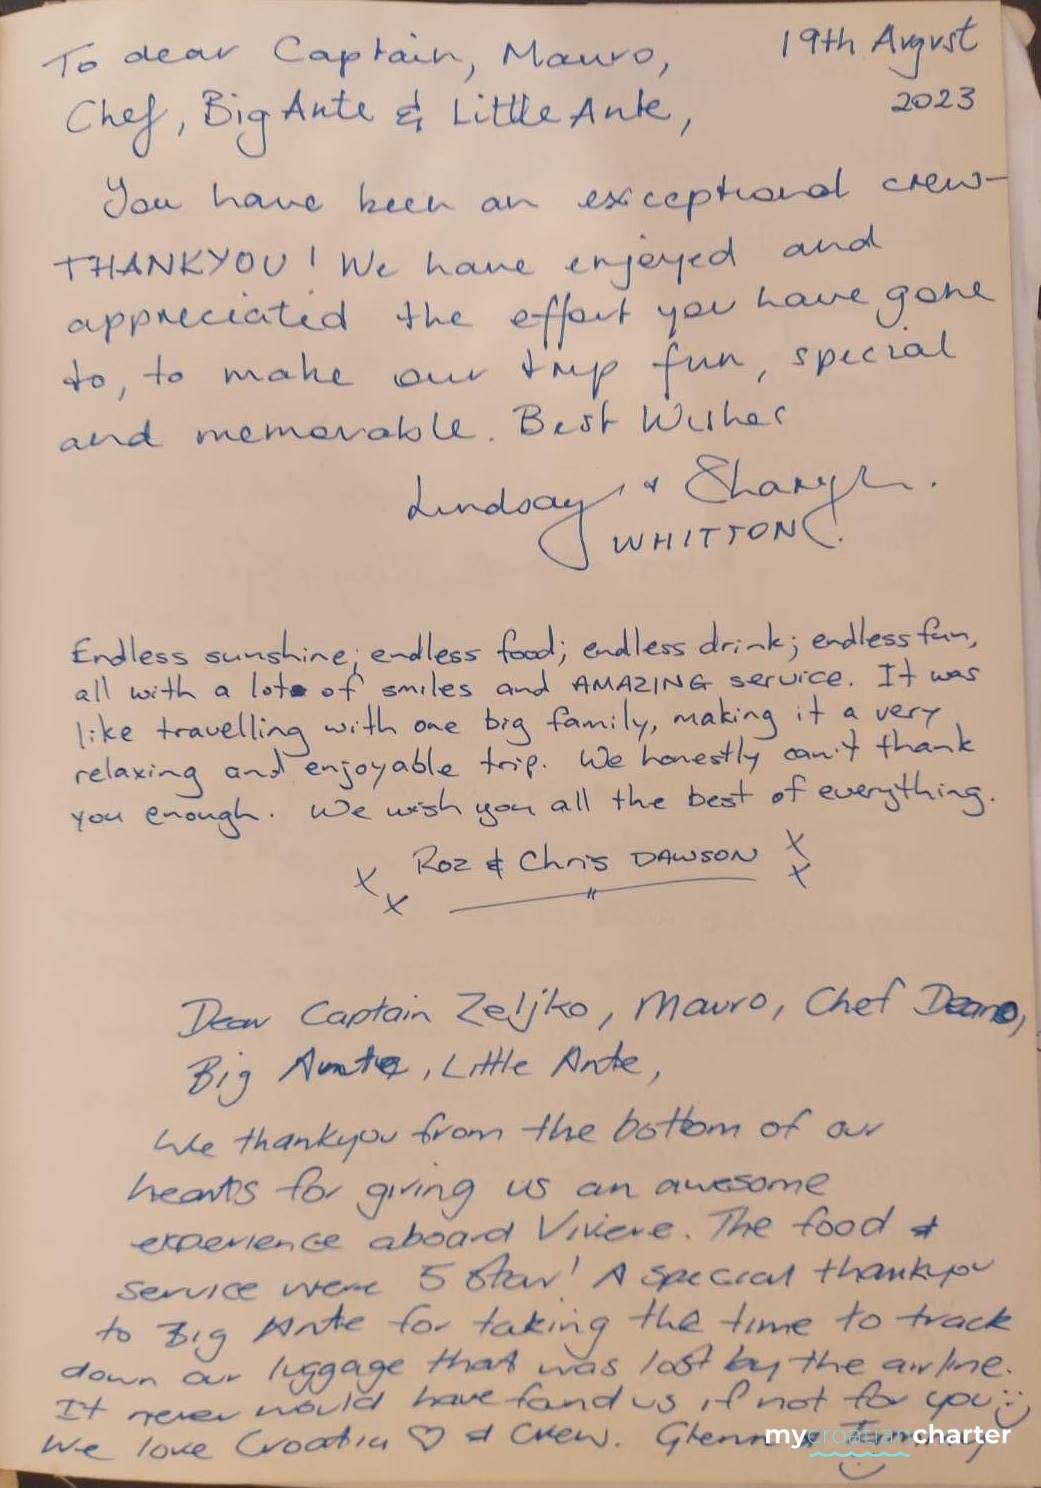 To dear Captain, Mauro,
19th August
2023
Chef, Big Ante & Little Ante,
You have been an exceptional crew-
THANKYOU! We have enjoyed and
appreciated the effort you have gone
to, to make our trip fun, special
and memorable. Best Wishes
Lindsay & Sharyn.
WHITTON.
Endless sunshine; endless food; endless drink; endless fun,
all with a lot of smiles and AMAZING service. It was
like travelling with one big family, making it a very
relaxing and enjoyable trip. We honestly can't thank
you enough. We wish you all the best of everything.
Roz & Chris DAWSON
x x
x x
Dear Captain Zeljko, Mauro, Chef Deano,
Big Ante, Little Ante,
We thankyou from the bottom of our
hearts for giving us an awesome
experience aboard Viviere. The food &
service were 5 Star! A special thankyou
to Big Ante for taking the time to track
down our luggage that was lost by the airline.
It never would have found us if not for you :)
We love Croatia ♡ & Crew. Glenn &
mycroatiancharter